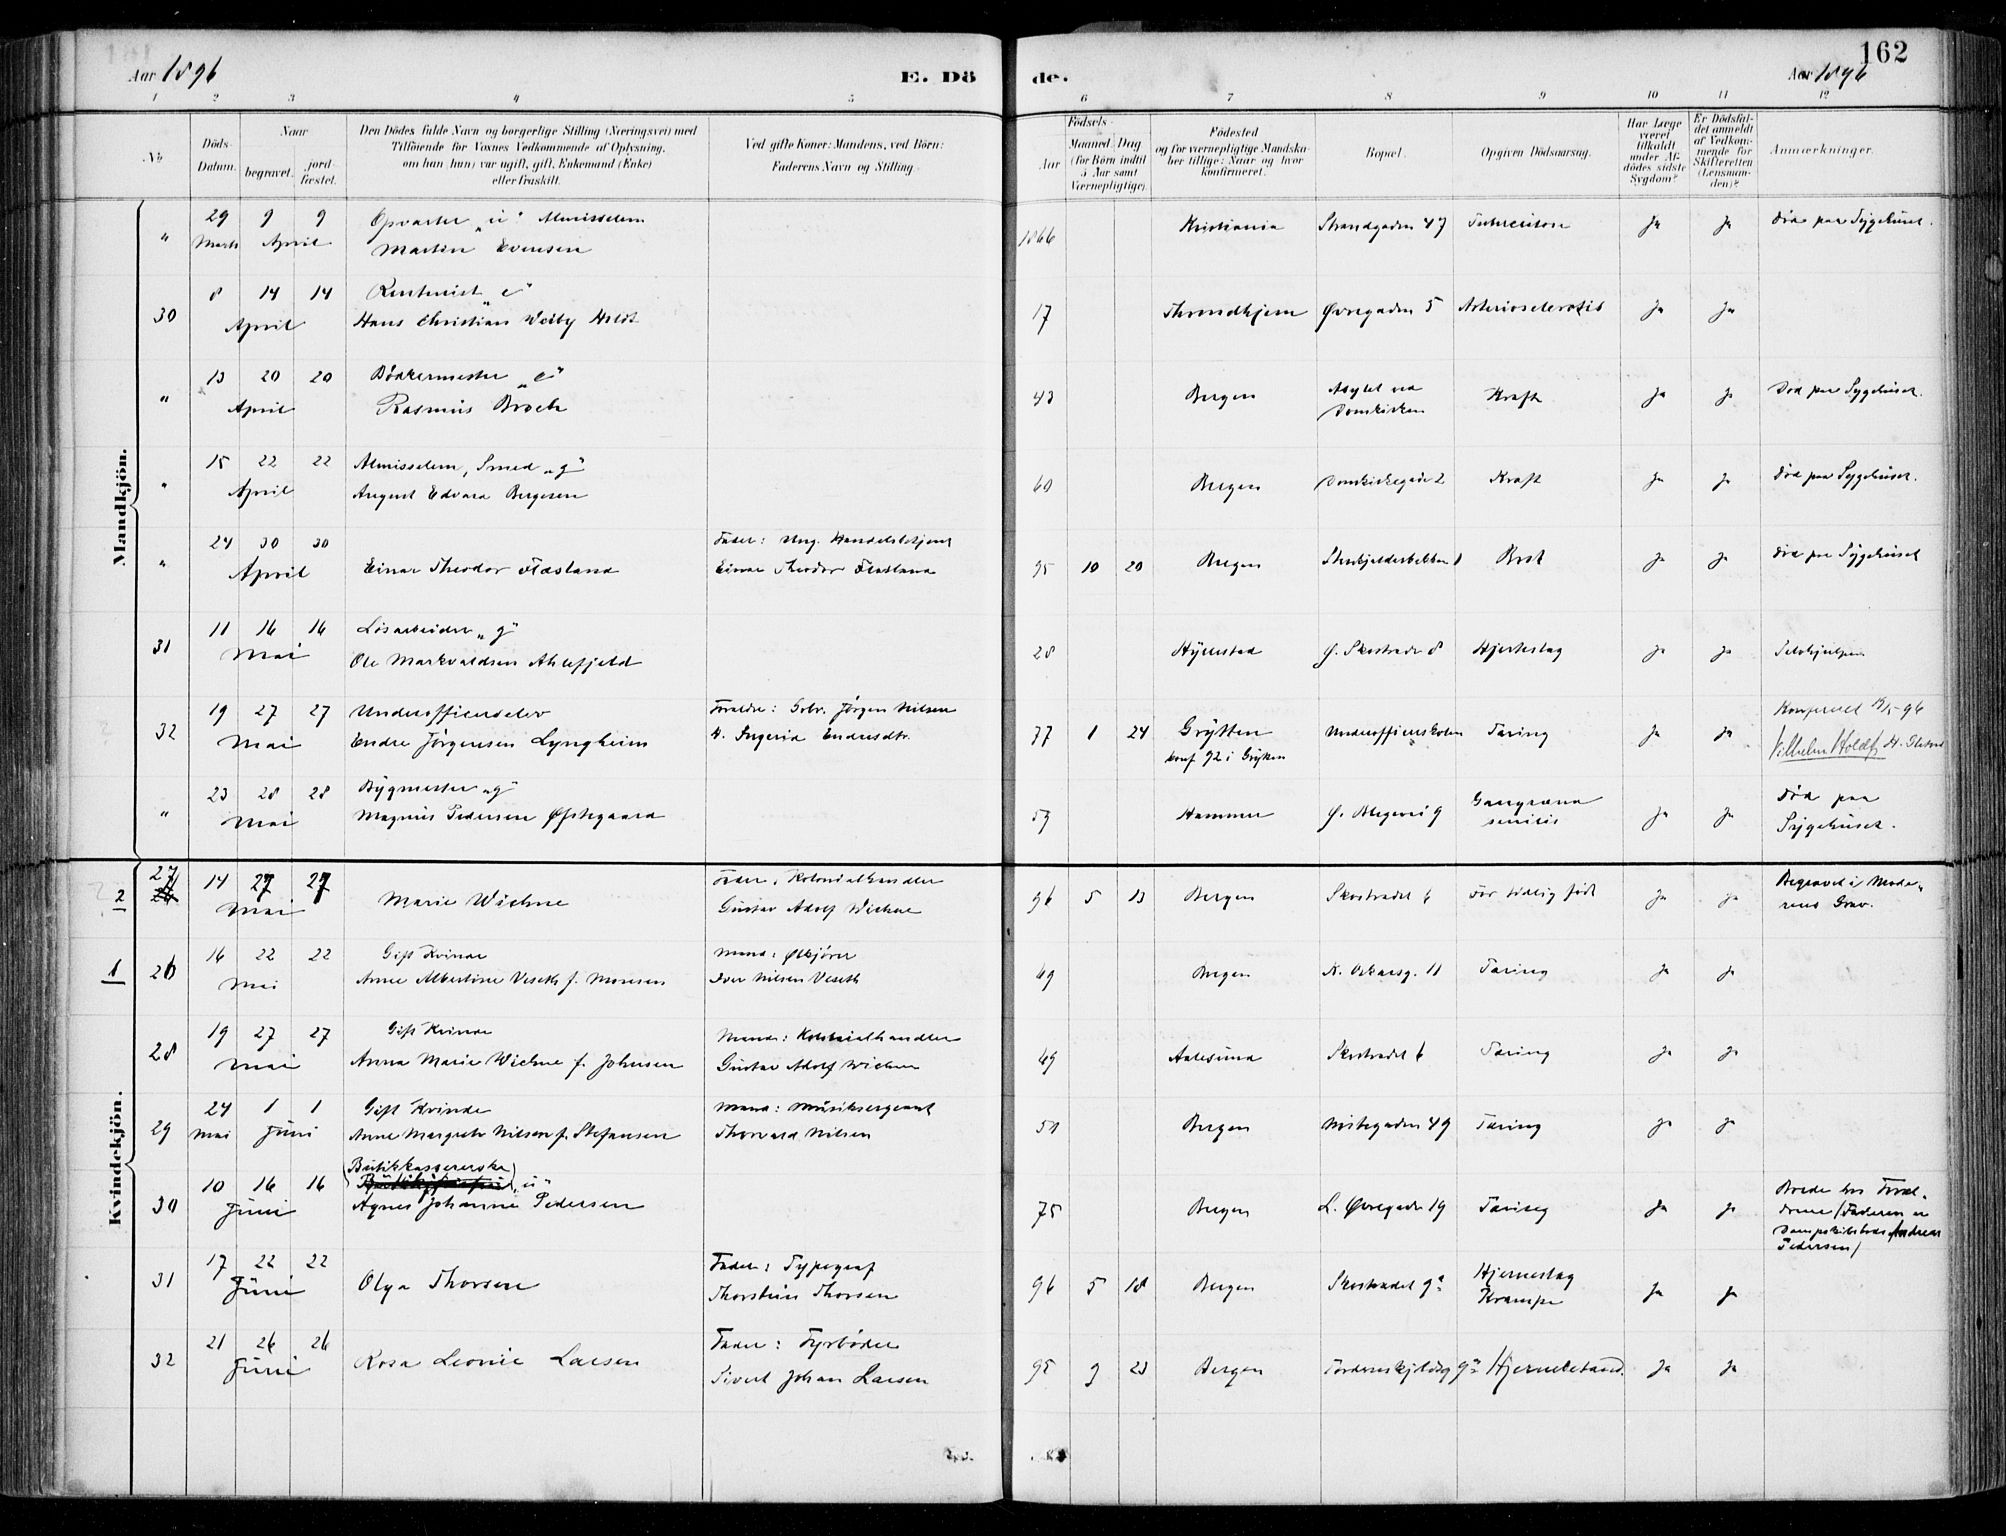 162
Aar 1896
E. Dö
de.
Aar 1896
1 2 3 4 5 6 7 8 9 10 11 12
No
Döds-Datum.
Naar
begravet.
jord-fæstet.
Den Dödes fulde Navn og borgerlige Stilling (Næringsvei) med
Tilföiende för Voxnes Vedkommende af Oplysning,
om han (hun) var ugift, gift, Enkemand (Enke)
eller fraskilt.
Ved gifte Koner: Mandens, ved Börn:
Faderens Navn og Stilling.
Födsels-
Aar
Maaned. Dag
(for Börn indtil
5 Aar samt
Værnepligtige).
Födested
og for værnepligtige Mandska-
ber tillige: Naar og hvor
konfirmeret.
Bopæl.
Opgiven Dödsaarsag.
Har Læge
været
tilkaldt
under Af-
dödes sidste
Sygdom?
Er Dödsfal-
det anmeldt
af Vedkom-
mende for
Skifteretten
(Lensman-
den)?
Anmærkninger.
Mandkjön.
" 29 Marts 9 9 April
Opvarter "u" Almisselem
Martin Evensen
1866 Kristiania Strandgaden 47 Tuberculose Ja Ja Död paa Sygehuset.
30 8 14 14 April
Rentenist "e"
Hans Christian Welby Holdt
17 Throndhjem Øvregaden 5 Arteriosclerosis Ja Ja
" 13 20 20 April
Bödkermester "e"
Rasmus Broch
43 Bergen Asylet ved Domkirken Kræft Ja Ja Död paa Sygehuset.
" 15 22 22 April
Almisselem, Smed "g"
August Edvard Bergesen
60 Bergen Domkirkegade 2 Kræft Ja Ja Död paa Sygehuset.
" 24 30 30 April
Einar Theodor Flæsland
Fader: Ung. Handelsbetjent
Einar Theodor Flæsland
95 10 20 Bergen Brok Ja Ja Död paa Sygehuset
31 11 16 16 Mai
Lösarbeider "g"
Ole Markvaldsen
28 Hyllestad Ø. Skostræde 8 Hjerteslag Ja Ja
32 19 27 27 Mai
Underofficerselev
Endre Jørgensen Lyngheim
Forældre: Selv. Jørgen Nilsen
H. Ingerid Endresdtr.
77 1 24 Grytten
konf 92 i Grytten
Underofficerskolen Tæring Ja Ja
Vilhelm Holdt
" 23 28 28 Mai
Bygmester "g"
Magnus Pedersen Østegaard
59 Hammer Ø. Blegevei 9 Gangræna senilis Ja Ja Död paa
Sygehuset.
Kvindekjön.
2 27 14 27 27 Mai
Marie Wiehne
Fader: Kolonialhandler
Gustav Adolf Wiehne
96 5 13 Bergen Skostrædet 6 For tidlig född Ja Ja Begravet i Mode-
rens Grav.
1 26 16 22 22 Mai
Gift Kvinde
Anne Albertine Veseth f. Monsen
Mand: Ølkjörer
Iver Nilsen Veseth
69 Bergen K. Oskarsg. 11 Tæring Ja Ja
28 19 27 27 Mai
Gift Kvinde
Anna Marie Wiehne f. Johnsen
Mand: Kolonialhandler
Gustav Adolf Wiehne
69 Aalesund Skostrædet 6 Tæring Ja Ja
29 24 Mai 1 1 Juni
Gift Kvinde
Anne Margrete Nilsen f. Stefansen
Mand: Musiksergeant
Thorvard Nilsen
50 Bergen Nöstegaden 49 Tæring Ja Ja
30 10 16 16 Juni
Butikkassererske "u"
Agnes Johanne Pedersen
75 Bergen L. Øvregade 19 Tæring Ja Ja Boede hos Foræl-
drene (Faderen er
Andreas
Pedersen)
31 17 22 22 Juni
Olga Thorsen
Fader: Typograf
Thorstein Thorsen
96 5 18 Bergen Skostrædet 9a Hjerneslag
Krampe
Ja Ja
32 21 26 26 Juni
Rosa Leonie Larsen
Fader: Fyrböder
Sivert Johan Larsen
95 9 23 Bergen Tordenskjoldsg 9a Hjernebetænd. Ja Ja